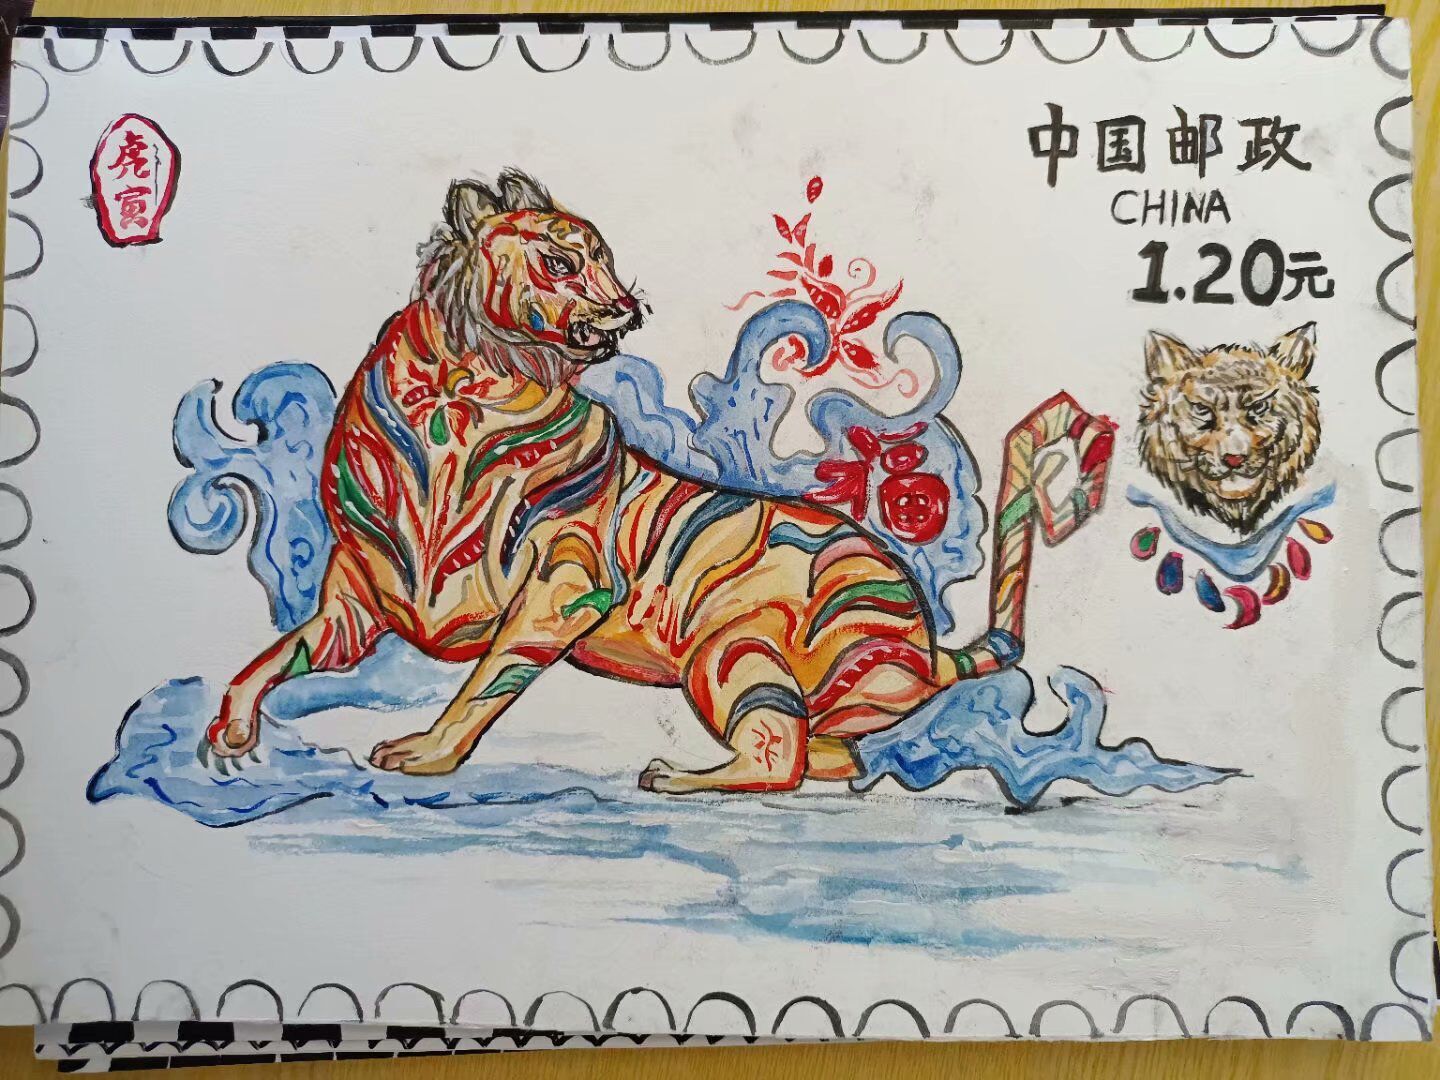 虎
寅
中国邮政
CHINA
1.20元
福